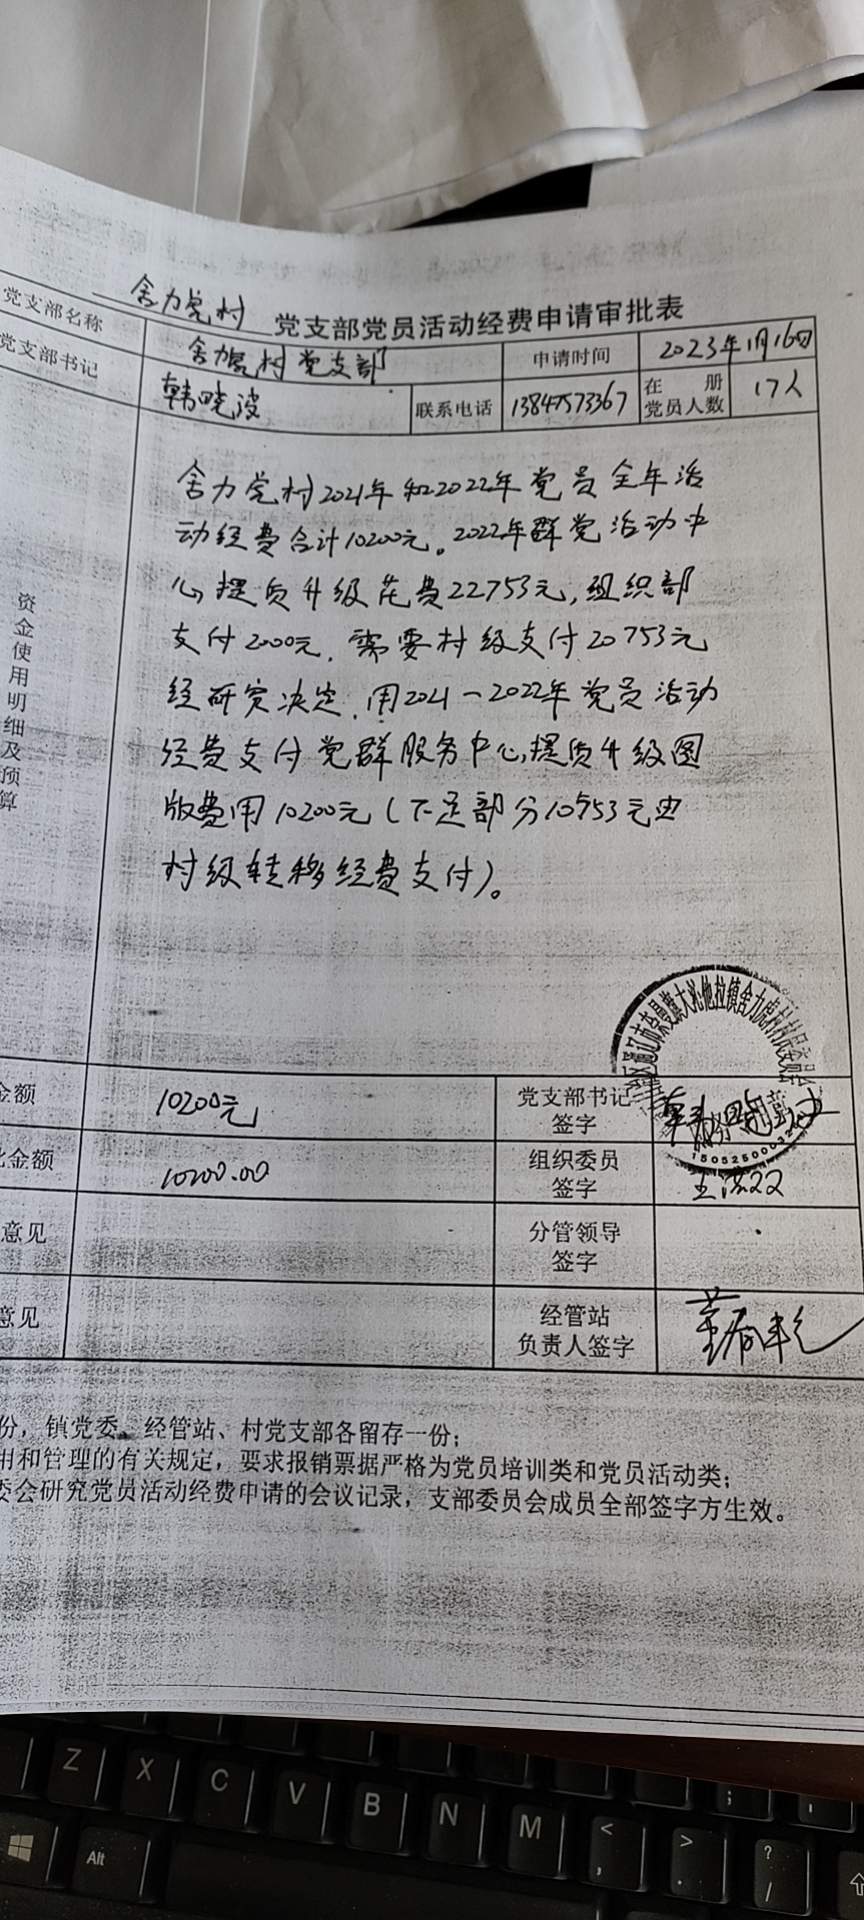 舍力虎村 党支部党员活动经费申请审批表
党支部名称 舍力虎村党支部 申请时间 2023年1月16日
党支部书记 韩晓波 联系电话 13847573367 在册党员人数 17人
资金使用明细及预算
舍力虎村2021年和2022年党员全年活
动经费合计10200元。2022年群党活动中
心提质升级花费22753元,组织部
支付2000元,需要村级支付20753元
经研究决定,用2021-2022年党员活动
经费支付党群服务中心提质升级图
版费用10200元(不足部分10553元由
村级转移经费支付)。
金额 10200元 党支部书记签字
金额 10200.00 组织委员签字
意见 分管领导签字
意见 经管站负责人签字
大沁他拉镇舍力虎村村民委员会
份,镇党委、经管站、村党支部各留存一份;
用和管理的有关规定,要求报销票据严格为党员培训类和党员活动类;
委会研究党员活动经费申请的会议记录,支部委员会成员全部签字方生效。
Z X C V B N M < , > . ? /
Alt